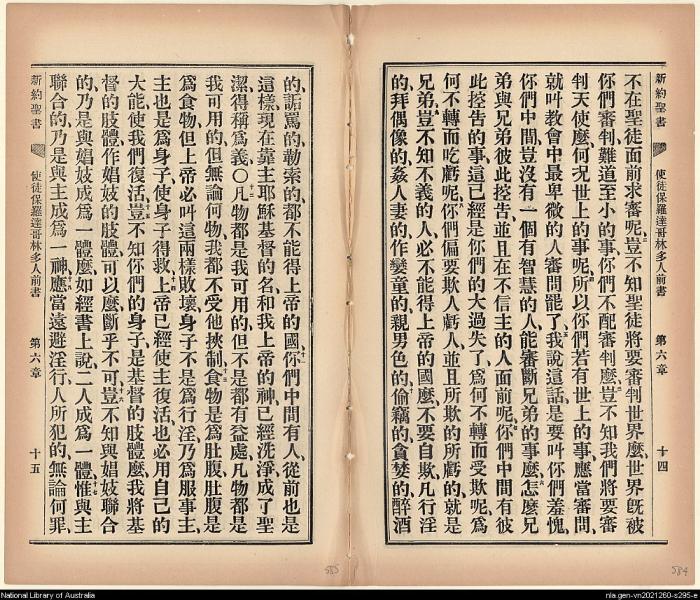 新約聖書 使徒保羅達哥林多人前書 第六章 十四
不在聖徒面前求審呢、豈不知聖徒將要審判世界麼、世界旣被
你們審判、難道至小的事、你們不配審判麼、豈不知我們將要審
判天使麼、何况世上的事呢、所以你們若有世上的事、應當審問、
就叫教會中最卑微的人審問罷了、我說這話、是要叫你們羞愧、
你們中間、豈沒有一個有智慧的人、能審斷兄弟的事麼、怎麼兄
弟與兄弟彼此控告、並且在不信主的人面前呢、你們中間有彼
此控告的事、這已經是你們的大過失了、爲何不轉而受欺呢、爲
何不轉而吃虧呢、你們偏要欺人虧人、並且所欺的所虧的、就是
兄弟、豈不知不義的人、必不能得上帝的國麼、不要自欺、凡行淫
的、拜偶像的、姦人妻的、作孌童的、親男色的、偷竊的、貪婪的、醉酒
的、詬罵的、勒索的、都不能得上帝的國、你們中間有人、從前也是
這樣、現在靠主耶穌基督的名、和我上帝的神、已經洗淨、成了聖
潔、得稱爲義〇凡物都是我可用的、但不是都有益處、凡物都是
我可用的、但無論何物、我都不受他挾制、食物是爲肚腹、肚腹是
爲食物、但上帝必叫這兩樣敗壞、身子不是爲行淫、乃爲服事主、
主也是爲身子、使身子得救、上帝已經使主復活、也必用自己的
大能、使我們復活、豈不知你們的身子、是基督的肢體麼、我將基
督的肢體、作娼妓的肢體、可以麼、斷乎不可、豈不知與娼妓聯合
的、乃是與娼妓成爲一體麼、如經書上說、二人成爲一體、惟與主
聯合的、乃是與主成爲一神、應當遠避淫行、人所犯的、無論何罪、
新約聖書 使徒保羅達哥林多人前書 第六章 十五
585
584
National Library of Australia
nla.gen-vn2021260-s295-e